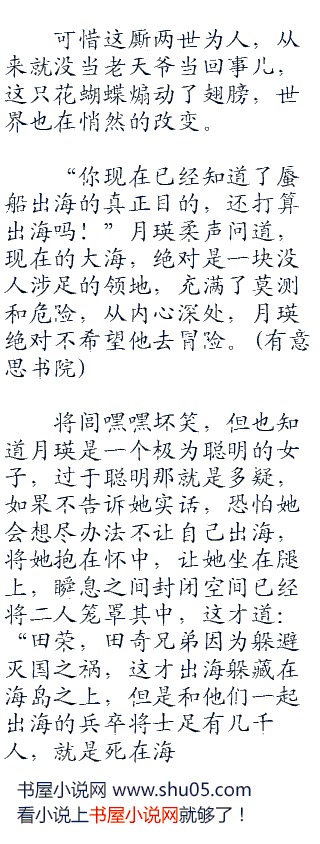 可惜这厮两世为人，从
来就没当老天爷当回事儿，
这只花蝴蝶煽动了翅膀，世
界也在悄然的改变。
“你现在已经知道了蜃
船出海的真正目的，还打算
出海吗！”月瑛柔声问道，
现在的大海，绝对是一块没
人涉足的领地，充满了莫测
和危险，从内心深处，月瑛
绝对不希望他去冒险。(有意
思书院)
将闾嘿嘿坏笑，但也知
道月瑛是一个极为聪明的女
子，过于聪明那就是多疑，
如果不告诉她实话，恐怕她
会想尽办法不让自己出海，
将她抱在怀中，让她坐在腿
上，瞬息之间封闭空间已经
将二人笼罩其中，这才道：
“田荣，田奇兄弟因为躲避
灭国之祸，这才出海躲藏在
海岛之上，但是和他们一起
出海的兵卒将士足有几千
人，就是死在海
书屋小说网 www.shu05.com
看小说上书屋小说网就够了！